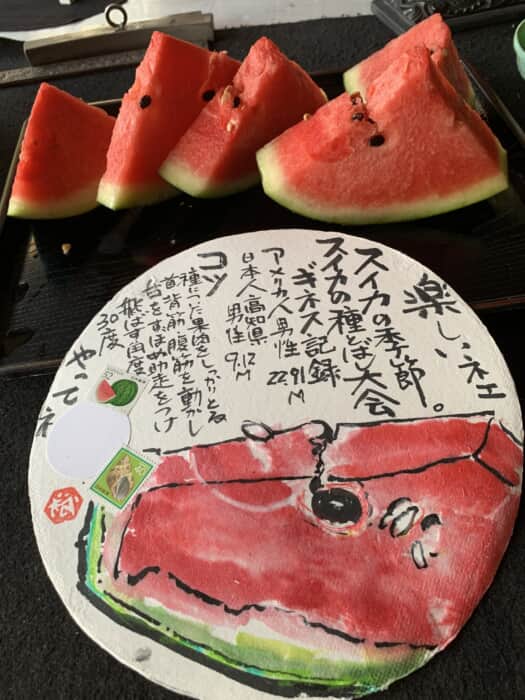 楽しいネエ
スイカの季節。
スイカの種とばし大会
ギネス記録
アメリカ人男性 22.91M
日本人 高知県
男性 9.12M
コツ
種についた果肉をしっかりとる
首背筋・腹筋を動かし
舌をすぼめ助走をつけ
飛ばす角度
30度
やってネ